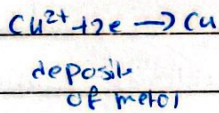 Cu²⁺ +2e → Cu
deposits
of metal